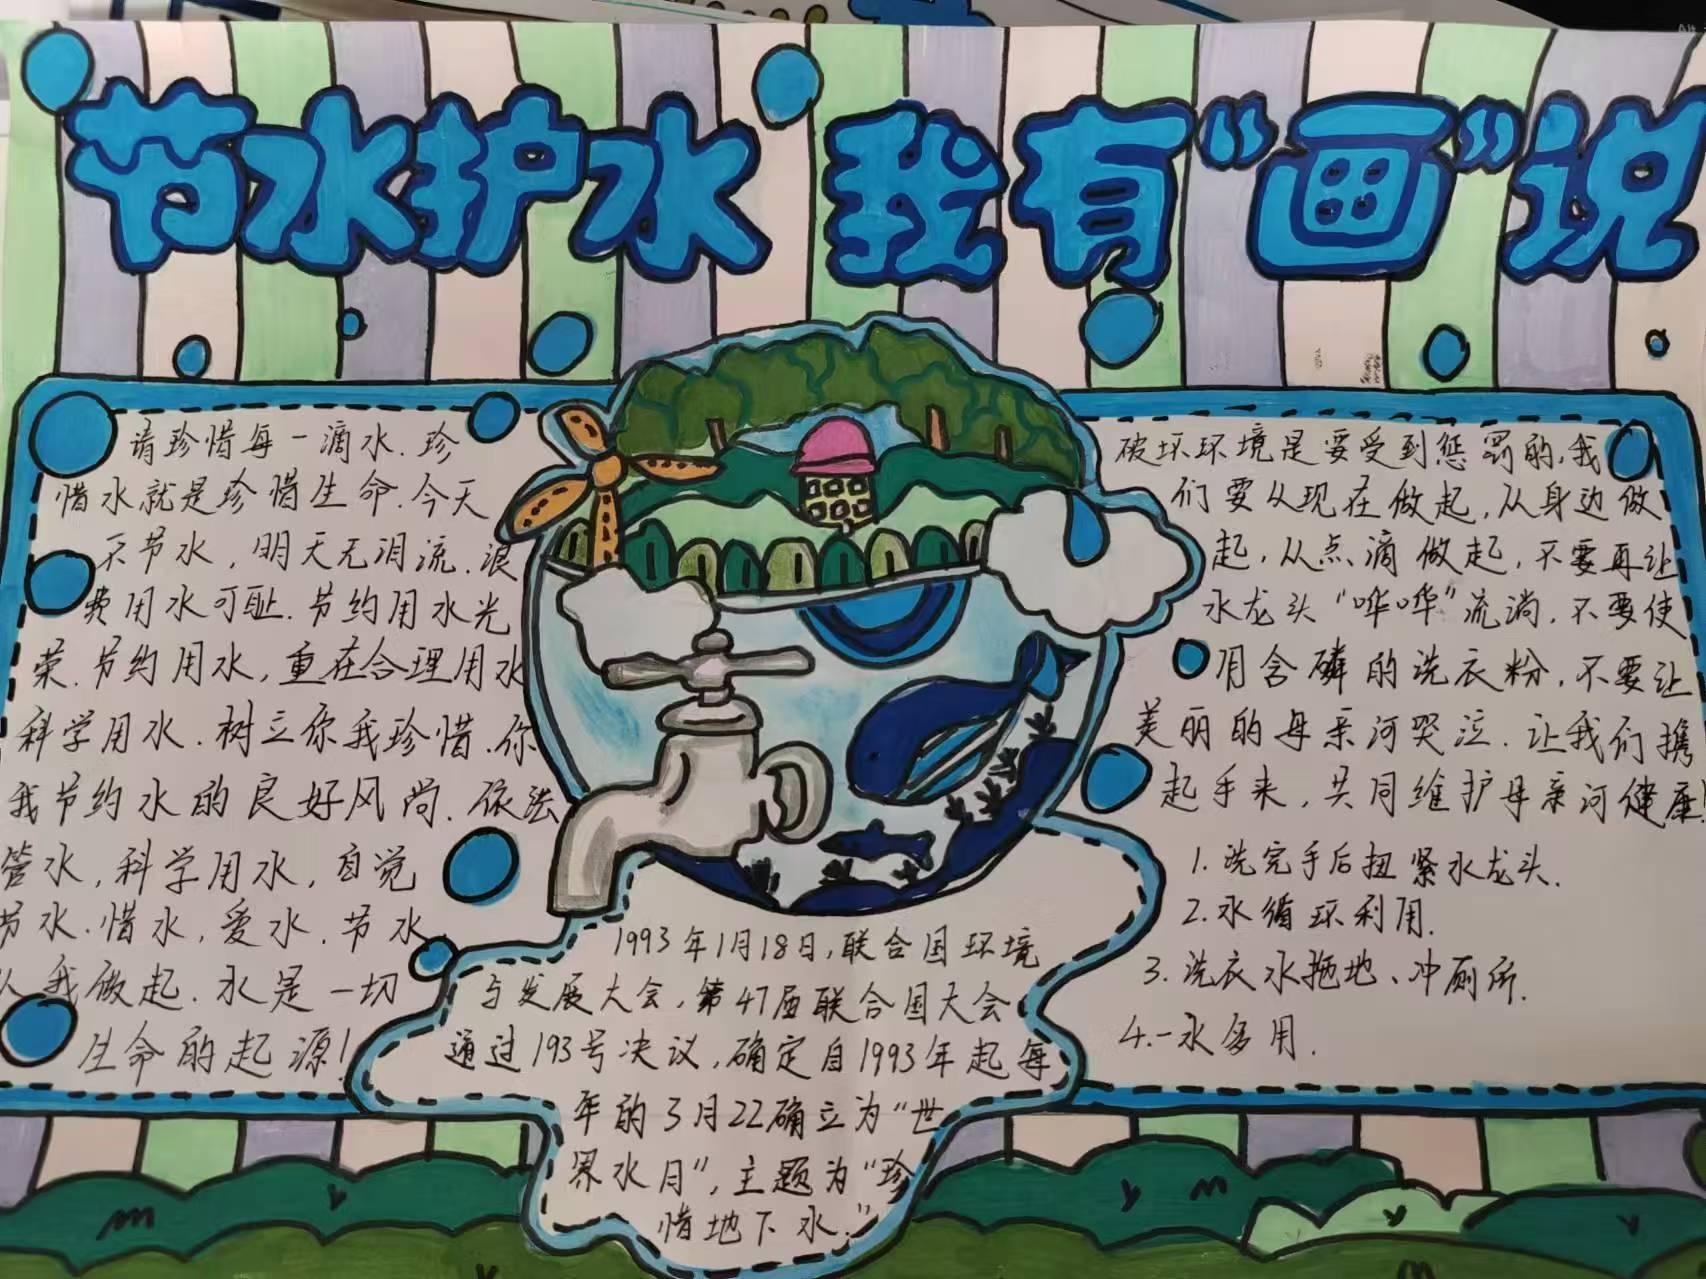 节水护水 我有“画”说
请珍惜每一滴水.珍
惜水就是珍惜生命.今天
不节水，明天无泪流.浪
费用水可耻.节约用水光
荣.节约用水，重在合理用水
科学用水.树立你我珍惜.你
我节约水的良好风尚.依法
管水，科学用水，自觉
节水.惜水，爱水.节水
从我做起.水是一切
生命的起源!
1993年1月18日，联合国环境
与发展大会，第47届联合国大会
通过193号决议，确定自1993年起每
年的3月22确立为“世
界水月”，主题为“珍
惜地下水.”
破坏环境是要受到惩罚的，我
们要从现在做起，从身边做
起，从点滴做起，不要再让
水龙头“哗哗”流淌，不要使
用含磷的洗衣粉，不要让
美丽的母亲河哭泣.让我们携
起手来，共同维护母亲河健康!
1.洗完手后扭紧水龙头.
2.水循环利用.
3.洗衣水拖地、冲厕所.
4.一水多用.